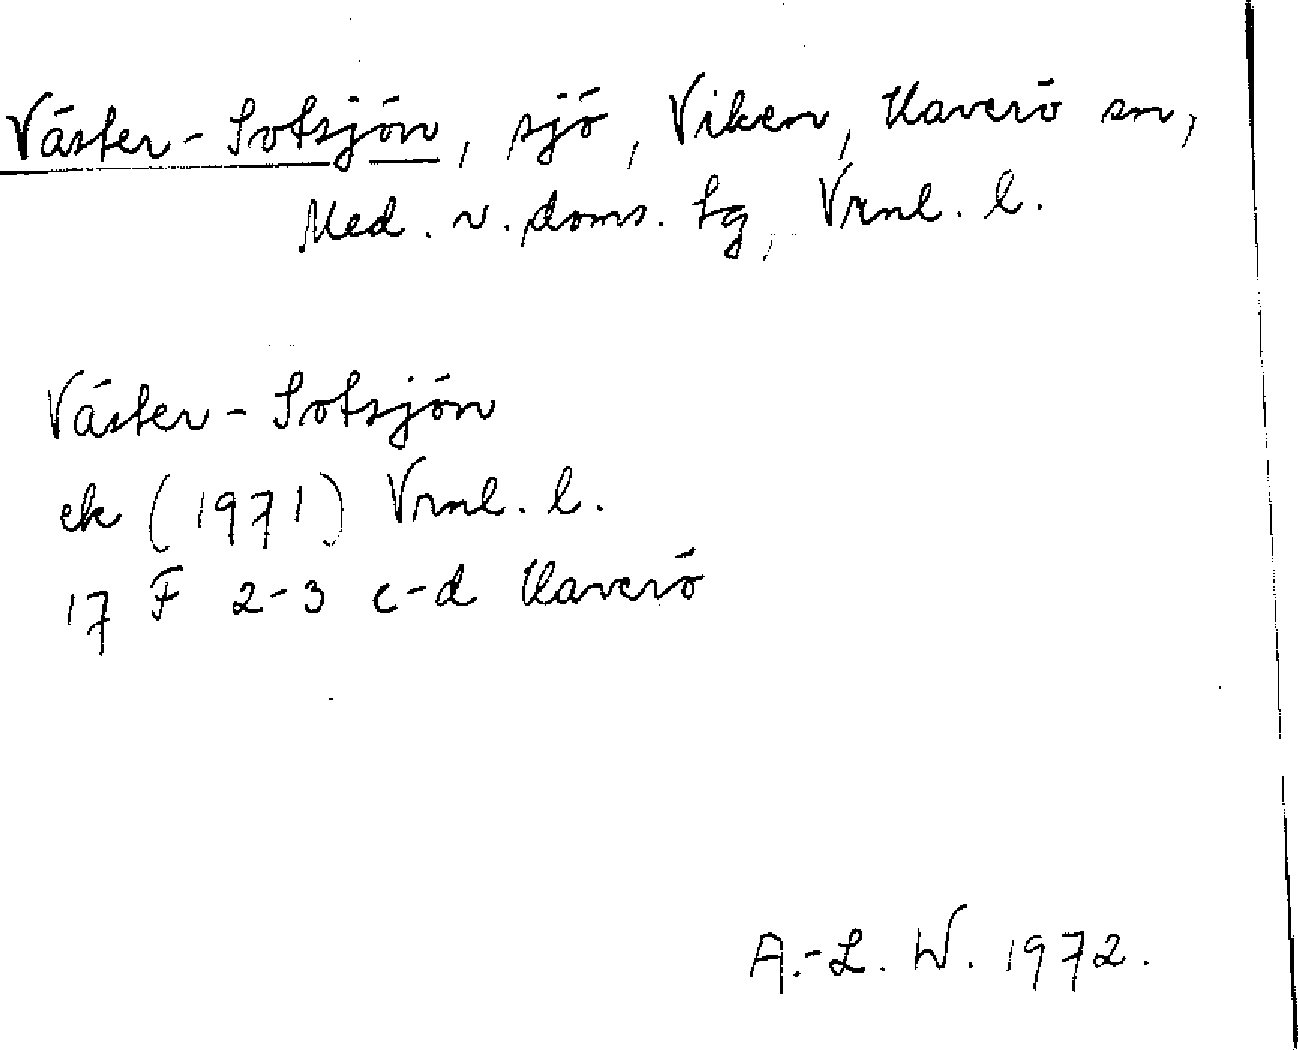 Väster-Sotsjön, sjö, Viken, Haverö sn,
Med. v. doms. tg, Vrnl. l.
Väster-Sotsjön
ek (1971) Vrnl. l.
17 F 2-3 c-d Haverö
A.-L. W. 1972.